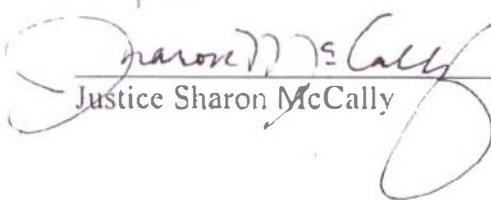 Sharon McCally
Justice Sharon McCally